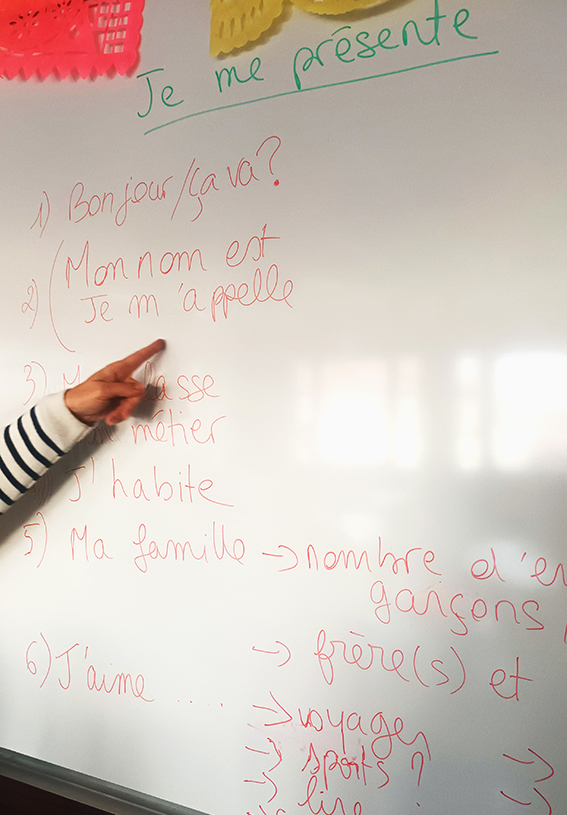 Je me présente
1) Bonjour/ça va?
2) (Mon nom est
Je m'appelle
3)
métier
J'habite
5) Ma famille -> nombre
garçons,
-> frère(s) et
6) J'aime .....
-> voyager
-> sports ? ->
-> lire ->